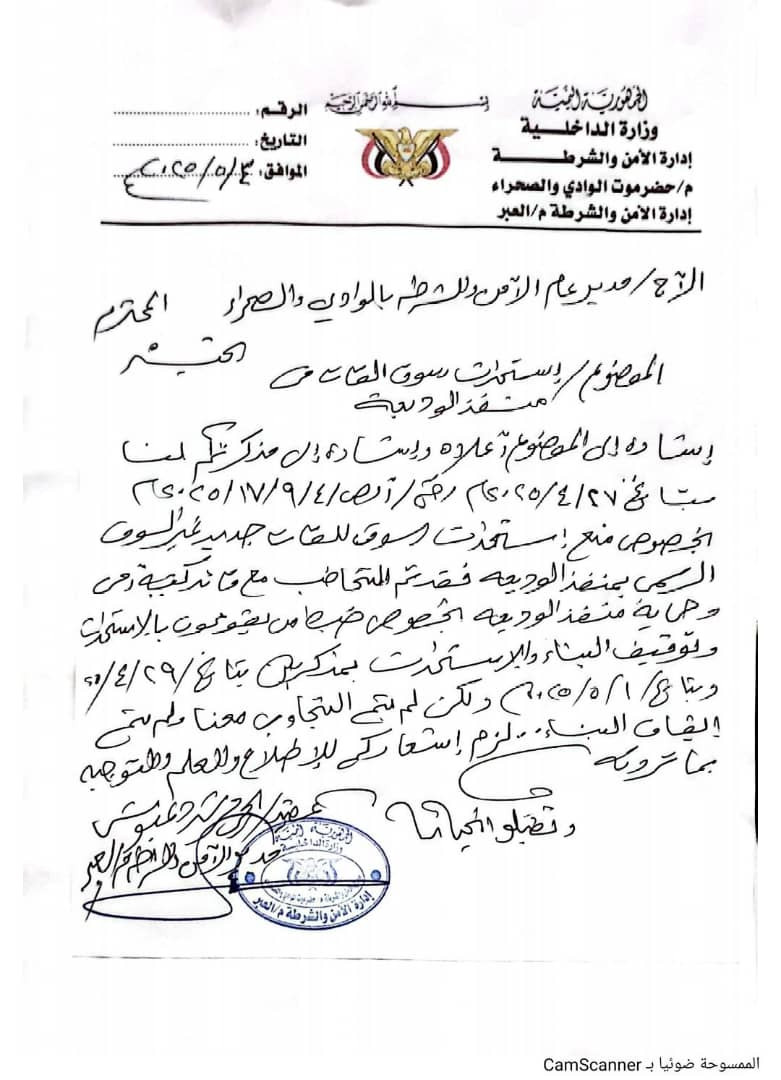 بسم الله الرحمن الرحيم
الجمهورية اليمنية
وزارة الداخلية
إدارة الأمن والشرطة
م/حضرموت الوادي والصحراء
إدارة الأمن والشرطة م/العبر
الرقم:
التاريخ:
الموافق: ٢٠٢٥/٥/٣م
الأخ/ مدير عام الأمن والشرطه بالوادي والصحراء المحترم
الموضوع/ إستحداث سوق القات في
منفذ الوديعة
إستناده إلى الموضوع أعلاه وإستناده إلى مذكرتكم لنا
بتاريخ ٢٠٢٥/٤/٢٧م رقم
بخصوص منع إستحداث اسوق للقات جديد غير السوق
الرسمي بمنفذ الوديعه فقد تم التخاطب مع قائد كتيبة أمن
وحماية منفذ الوديعه بخصوص ضبط من يقومون بالاستحداث
وتوقيف البناء والاستحداث بمذكرتين بتاريخ ٤/٢٩/
وبتاريخ ٢٠٢٥/٥/١م ولكن لم يتم التجاوب معنا ولم يتم
إيقاف البناء.. لزم إشعاركم للإطلاع والعلم والتوجيه
بما ترونه
وتقبلو تحياتنا
مدير الأمن والشرطة م/العبر
الجمهورية اليمنية
وزارة الداخلية
إدارة الأمن والشرطة م/العبر
الممسوحة ضوئيا بـ CamScanner